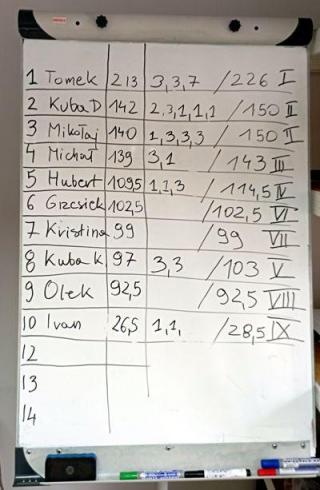 1 Tomek 213 3,3,7 /226 I
2 Kuba D 142 2,3,1,1,1 /150 II
3 Mikołaj 140 1,3,3,3 /150 II
4 Michał 139 3,1 /143 III
5 Hubert 109,5 1,1,3 /114,5 IV
6 Grzesiek 102,5 /102,5 VI
7 Kristina 99 /99 VII
8 Kuba K 97 3,3 /103 V
9 Olek 92,5 /92,5 VIII
10 Ivan 26,5 1,1, /28,5 IX
12
13
14